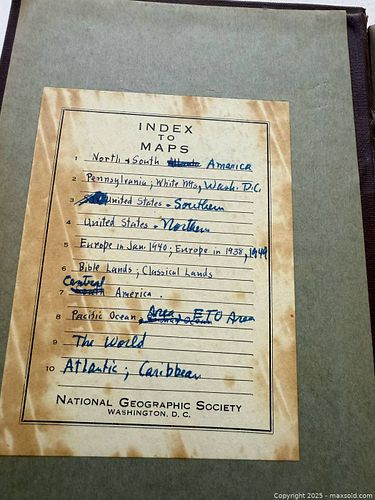 INDEX
TO
MAPS
1 North & South America
2 Pennsylvania; White Mts, Wash. D.C.
3 United States - Southern
4 United States - Northern
5 Europe in Jan. 1940; Europe in 1938, 1949
6 Bible Lands; Classical Lands
Central
7 South America.
8 Pacific Ocean, Area ETO Area
9 The World
10 Atlantic; Caribbean
NATIONAL GEOGRAPHIC SOCIETY
WASHINGTON, D. C.
Copyright 2025 - maxsold.com